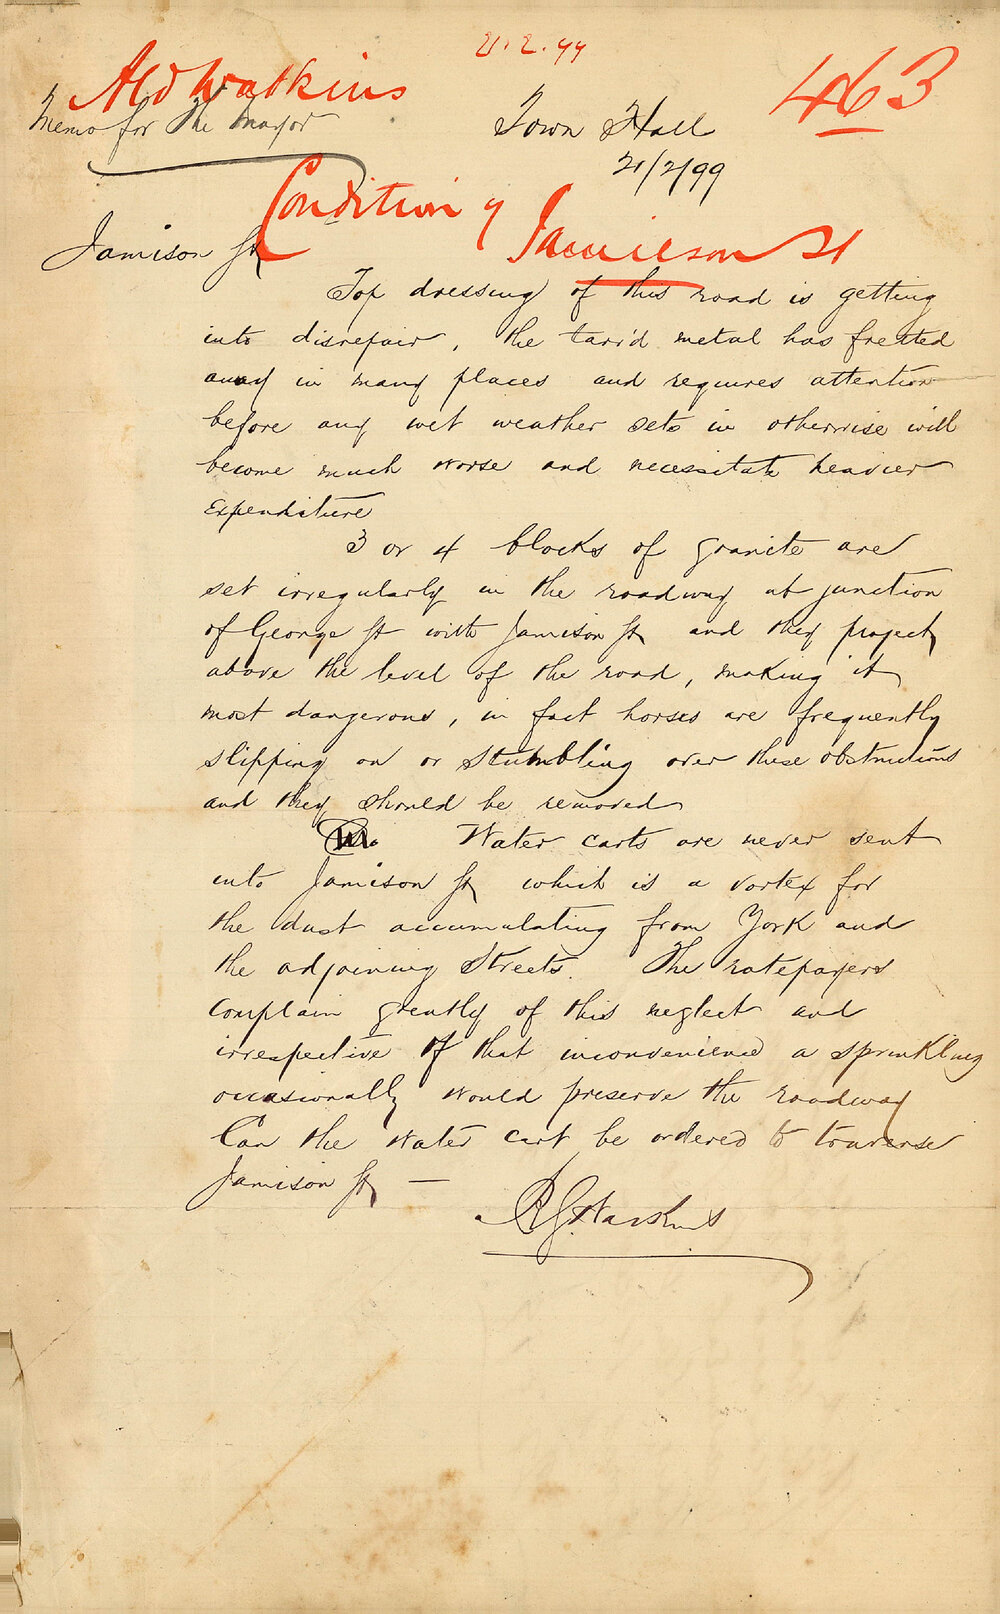 21.2.99
Ald Watkins
463
Memo for The Mayor
Town Hall
21/2/99
Condition of Jamieson St
Jamison St
Top dressing of this road is getting
into disrepair, the tarr'd metal has fretted
away in many places and requires attention
before any wet weather sets in otherwise will
become much worse and necessitate heavier
expenditure
3 or 4 blocks of granite are
set irregularly in the roadway at junction
of George St with Jamison St and they project
above the level of the road, making it
most dangerous, in fact horses are frequently
slipping on or stumbling over these obstructions
and they should be removed
Water carts are never sent
into Jamison St which is a vortex for
the dust accumulating from York and
the adjoining Streets. The ratepayers
complain greatly of this neglect and
irrespective of that inconvenience a sprinkling
occasionally would preserve the roadway
Can the Water cart be ordered to traverse
Jamison St —
R G Watkins